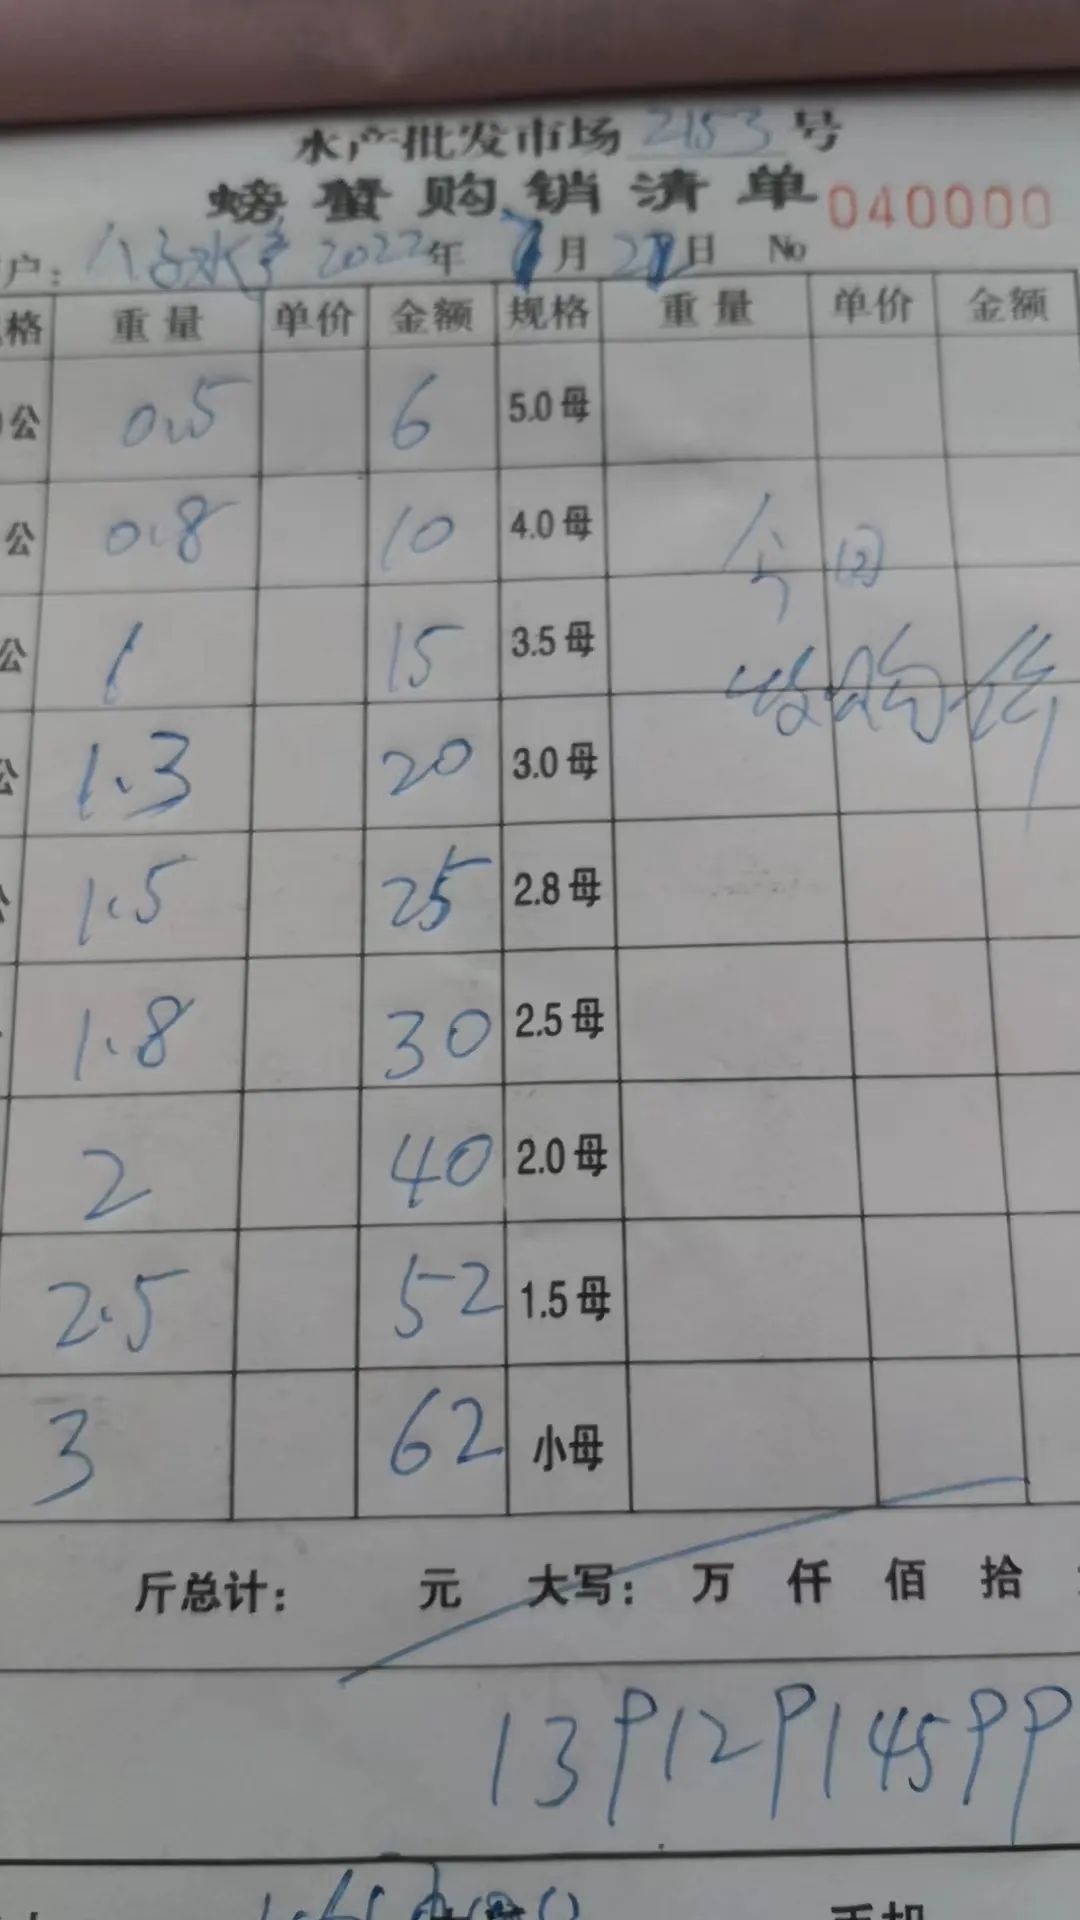 水产批发市场 2153 号
螃蟹购销清单 040000
户: 八子水产 2022年 7月 21日 No
格 重量 单价 金额 规格 重量 单价 金额
公 0.5 6 5.0母
公 0.8 10 4.0母
今日
公 1 15 3.5母
收购价
公 1.3 20 3.0母
1.5 25 2.8母
1.8 30 2.5母
2 40 2.0母
2.5 52 1.5母
3 62 小母
斤总计: 元 大写: 万 仟 佰 拾
13912914599
手机